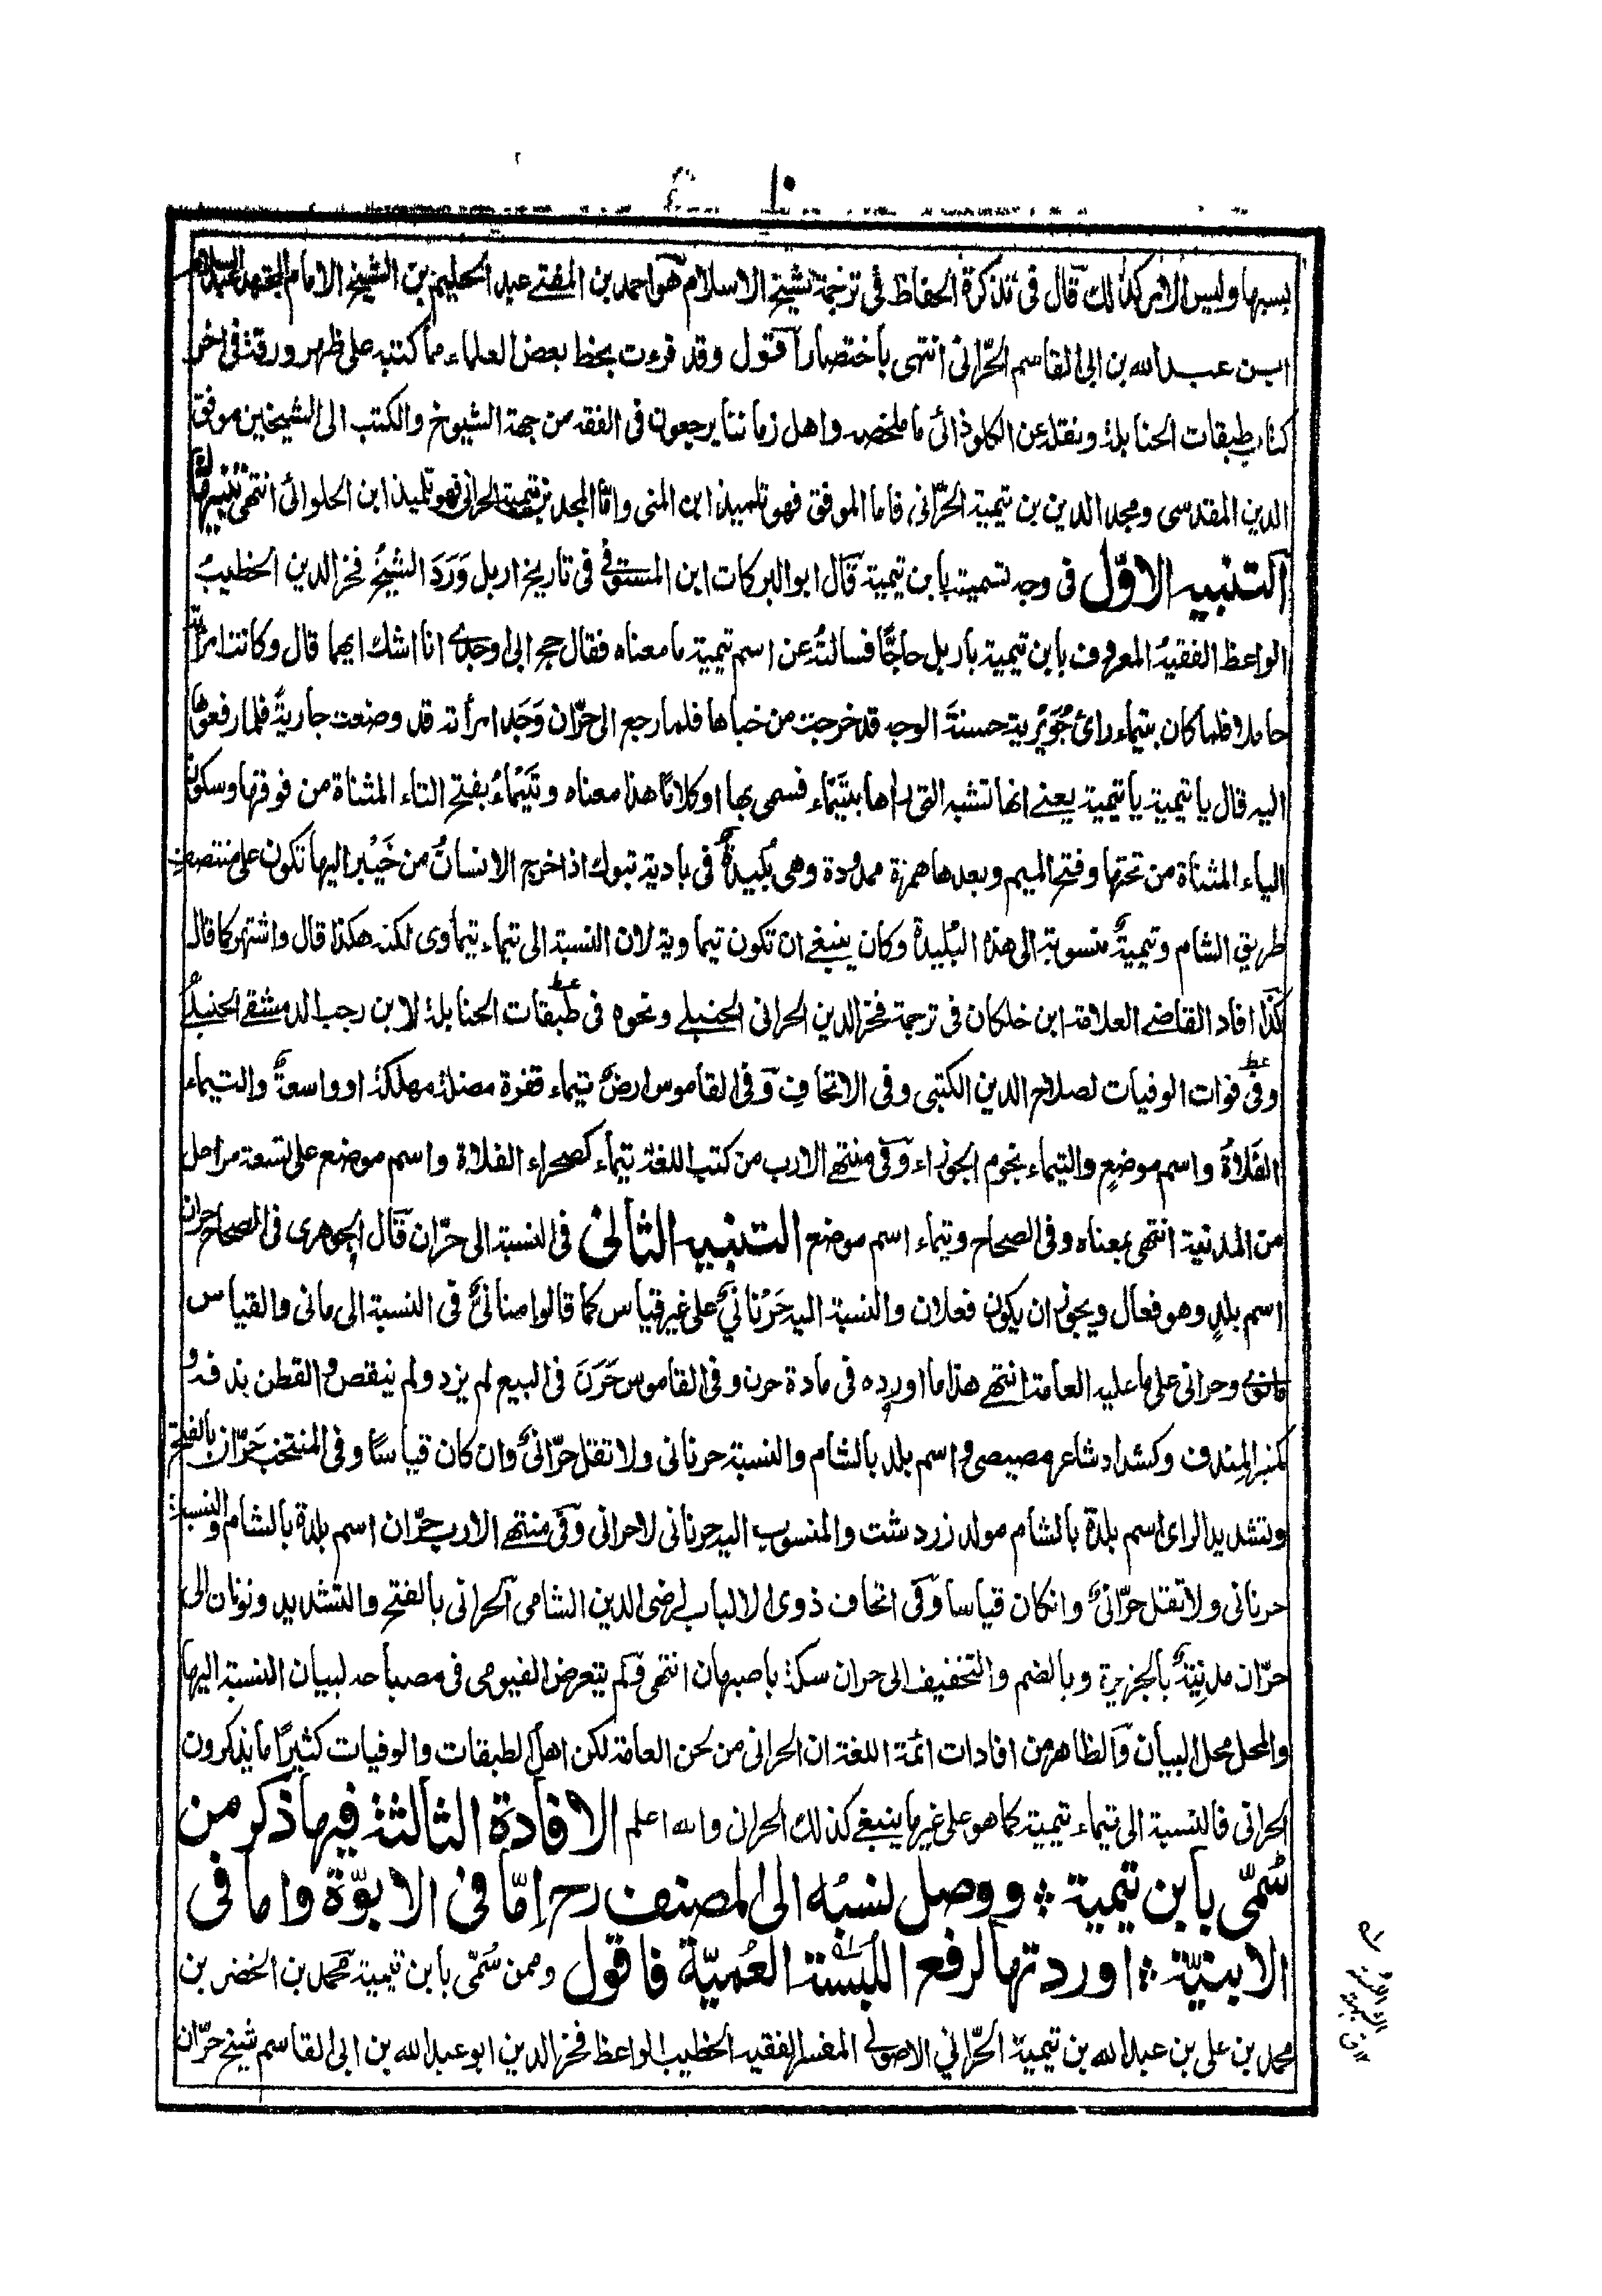 ١٠
بسببها وليس الامر كذلك قال فى تذكرة الحفاظ فى ترجمة شيخ الاسلام هو احمد بن المفتے عبد الحليم بن الشيخ الامام المجتهد عبد السلام
ابن عبد الله بن ابى القاسم الحرّانى انتهى باختصار اقول وقد قرءت بخط بعض العلماء مما كتبه على ظهر ورقة فى اخر
كتاب طبقات الحنابلة ونقله عن الكلوذائ ما ملخصه واهل زماننا يرجعون فى الفقه من جهة الشيوخ والكتب الى الشيخين موفق
الدين المقدسى ومجد الدين بن تيمية الحرّانى فاما الموفق فهو تلميذ ابن المنى وامّا المجد بن تيمية الحرانى فهو تلميذ ابن الحلوائ انتهى
التنبيه الاوّل فى وجه تسميته بابن تيمية قال ابو البركات ابن المستوفے فى تاريخ اربل وَرَدَ الشيخُ فخر الدين الخطيبُ
الواعظ الفقيهُ المعروف بابن تيمية باربل حاجًّا فسالتُه عن اسم تيمية ما معناه فقال حج ابى او جدے انا اشك ايهما قال وكانت امرأته
حاملا فلما كان بتيماء رائ جُوَيْرية حسنةَ الوجه قد خرجت من خباها فلما رجع الى حرّان وَجَد امرأته قد وضعت جاريةً فلما رفعوها
اليه قال يا تيمية يا تيمية يعنے انها تشبه التى راها بتَيْمَاء فسمى بها او كلامًا هذا معناه وتَيْمَاءُ بفتح التاء المثناة من فوقها وسكون
الياء المثناة من تحتها وفتح الميم وبعدها همزة ممدودة وهى بُلَيدةٌ فى بادية تبوك اذا خرج الانسانُ من خَيْبر اليها تكون على منتصف
طريق الشام وتيميةٌ منسوبة الى هذه البُلَيدة وكان ينبغے ان تكون تيماوية لان النسبة الى تيماء تيماوى لكنه هكذا قال واشتهر كما قال
كذا افاد القاضے العلامة ابن خلكان فى ترجمة فخر الدين الحرانى الحنبلے ونحوه فى طبقات الحنابلة لابن رجب الدمشقے الحنبلے
وفى فوات الوفيات لصلاح الدين الكتبى وفى الاتحاف وفى القاموس ارضٌ تيماء قفرة مضلة مهلكة او واسعةٌ والتيماء
الفَلاةُ واسم موضعٍ والتيماء نجوم الجوزاء وفى منتهے الارب من كتب اللغة تيماء كصحراء الفلاة واسم موضع على تسعة مراحل
من المدنية انتهى بمعناه وفى الصحاح وتيماء اسم موضع التنبيه الثانى فى النسبة الى حرّان قال الجوهرى فى الصحاح حران
اسم بلدٍ وهو فعال ويجوز ان يكون فعلان والنسبة اليه حَرْنانيٌّ على غير قياس كما قالوا منانىٌّ فى النسبة الى مانى والقياس
مانوے وحرانى على ما عليه العامة انتهے هذا ما اورده فى مادة حرن وفى القاموس حَرَنَ فى البيع لم يزد ولم ينقص والقطن ندفه و
كمنبر المِندف وكشداد شاعر مصيصى و اسم بلد بالشام والنسبة حرنانى ولا تقل حرّانىٌّ وان كان قياسًا وفى المنتخب حَرّان بالفتح
وتشديد الراى اسم بلدة بالشام مولد زردشت والمنسوب اليه حرنانى لا حرانى وفى منتهے الارب حرّان اسم بلدة بالشام والنسبة
حرنانى ولا تقل حرّانىٌّ وانكان قياسا وفى اتحاف ذوى الالباب لرضى الدين الشامى الحرانى بالفتح والتشديد ونونان الى
حرّان مدينةٌ بالجزيرة وبالضم والتخفيف الى حران سكة باصبهان انتهى ولم يتعرض الفيومى فى مصباحه لبيان النسبة اليها
والمحل محل البيان والظاهر من افادات ائمة اللغة ان الحرانى من لحن العامة لكن اهل الطبقات والوفيات كثيرًا ما يذكرون
الحرانى فالنسبة الى تيماء تيمية كما هو على غير ما ينبغے كذلك الحرانى والله اعلم الافادة الثالثة فيما ذكر من
سُمّى بابن تيمية ؞ ووصل نسبُه الى المصنف رح اِمّا فى الابوّة واما فى
الابنيّة ؞ اوردتها لرفع اللُبسة العُميّة فاقول وممن سُمّى بابن تيمية محمد بن الخضر بن
محمد بن على بن عبد الله بن تيمية الحرّاني الاصولے المفسر الفقيه الخطيب الواعظ فخر الدين ابو عبد الله بن ابى القاسم شيخ حرّان